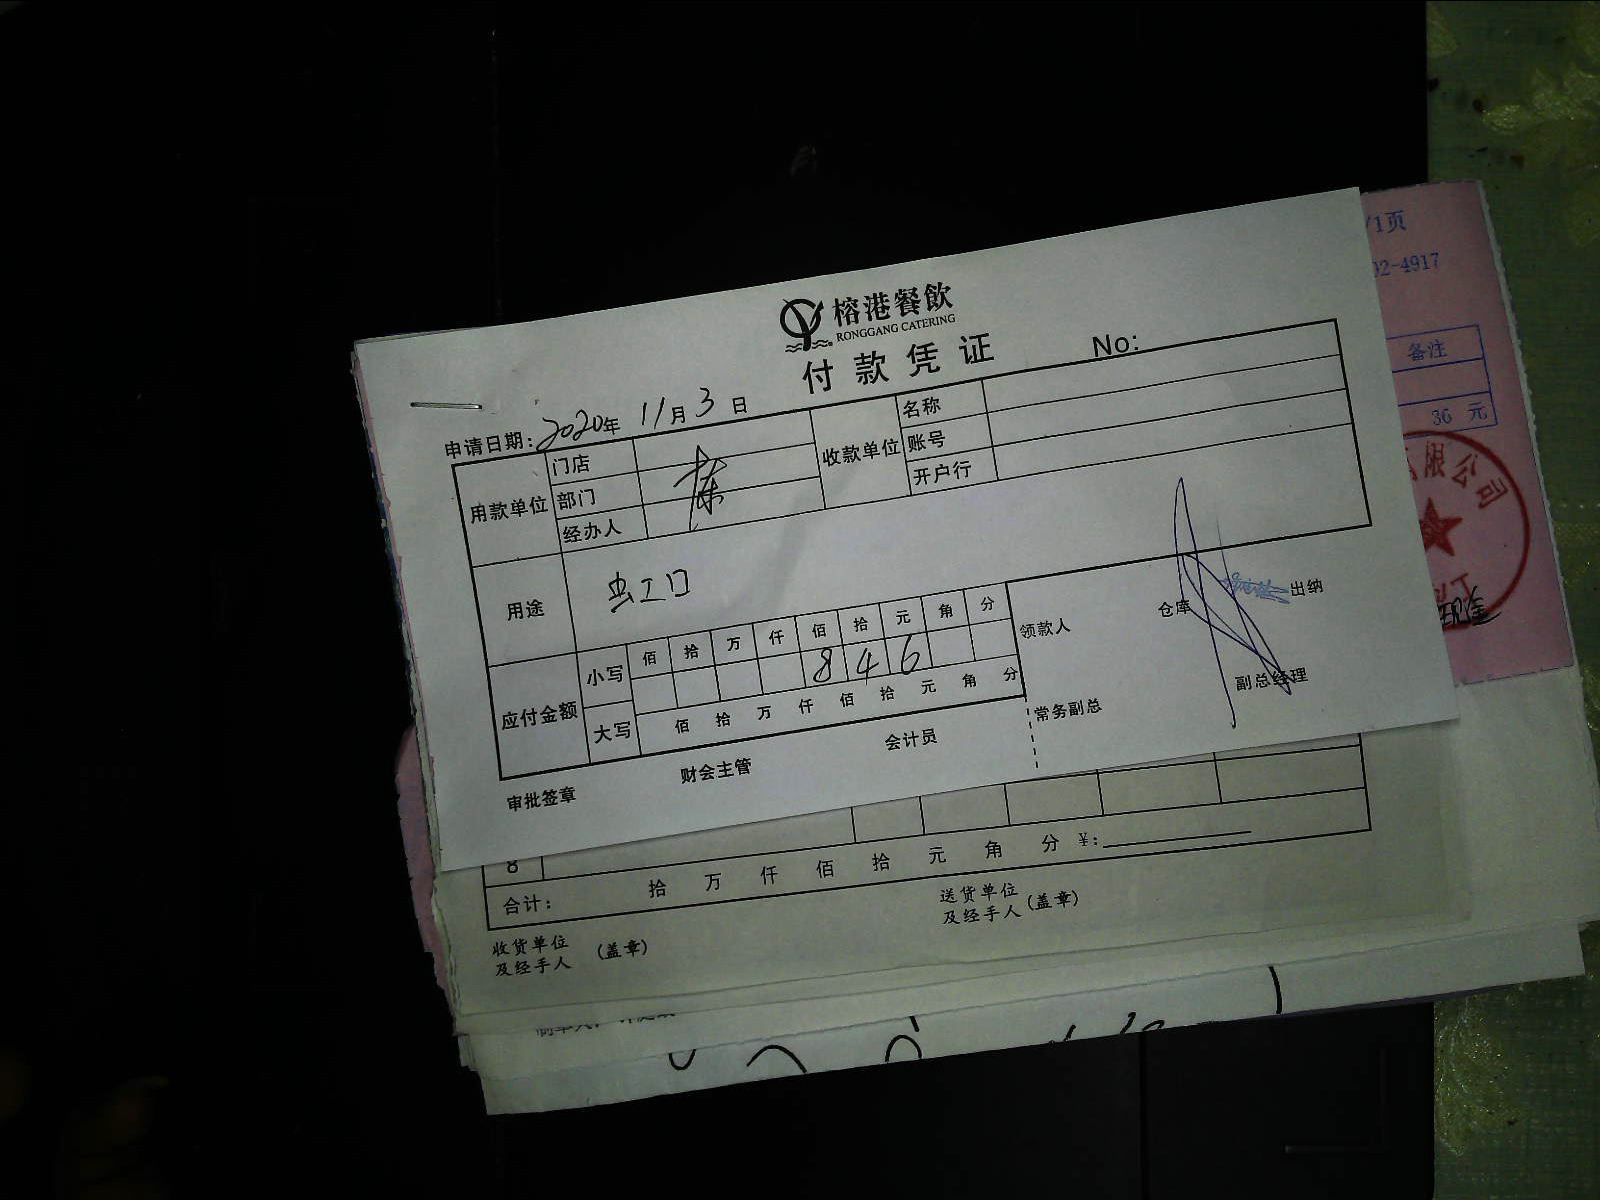 榕港餐飲
RONGGANG CATERING
付款凭证
No:
申请日期: 2020年 11月 3日
用款单位
门店
部门
经办人
收款单位
名称
账号
开户行
用途
虫工口
应付金额
小写
佰 拾 万 仟 佰 拾 元 角 分
8 4 6
大写
佰 拾 万 仟 佰 拾 元 角 分
领款人
仓库
出纳
常务副总
副总经理
审批签章
财会主管
会计员
8
合计:
拾 万 仟 佰 拾 元 角 分 ¥:
收货单位
及经手人 (盖章)
送货单位
及经手人 (盖章)
/1页
02-4917
备注
36 元
限公司